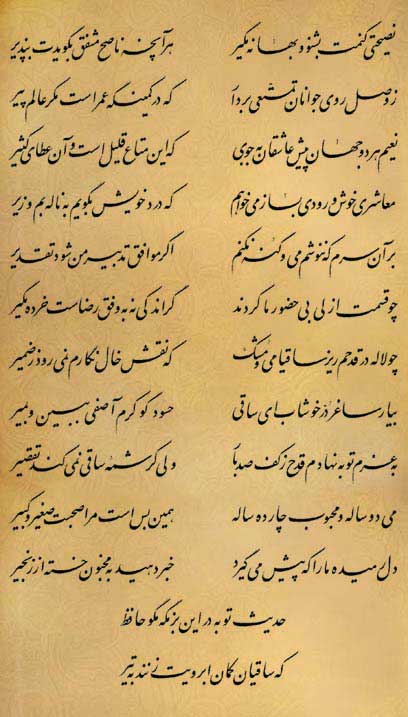 نصیحتی کنمت بشنو و بهانه مگیر هر آنچه ناصح مشفق بگویدت بپذیر
ز وصل روی جوانان تمتعی بردار که در کمینگه عمر است مکر عالم پیر
نعیم هر دو جهان پیش عاشقان به جوی که این متاع قلیل است و آن عطای کثیر
معاشری خوش و رودی بساز می‌خواهم که درد خویش بگویم به ناله بم و زیر
بر آن سرم که ننوشم می و گنه نکنم اگر موافق تدبیر من شود تقدیر
چو قسمت ازلی بی حضور ما کردند گر اندکی نه به وفق رضاست خرده مگیر
چو لاله در قدحم ریز ساقیا می و مشک که نقش خال نگارم نمی‌رود ز ضمیر
بیار ساغر در خوشاب ای ساقی حسود گو کرم آصفی ببین و بمیر
به عزم توبه نهادم قدح ز کف صد بار ولی کرشمه ساقی نمی‌کند تقصیر
می دو ساله و محبوب چارده ساله همین بس است مرا صحبت صغیر و کبیر
دل رمیده ما را که پیش می‌گیرد خبر دهید به مجنون خسته از زنجیر
حدیث توبه در این بزمگه مگو حافظ
که ساقیان کمان ابرویت زنند به تیر